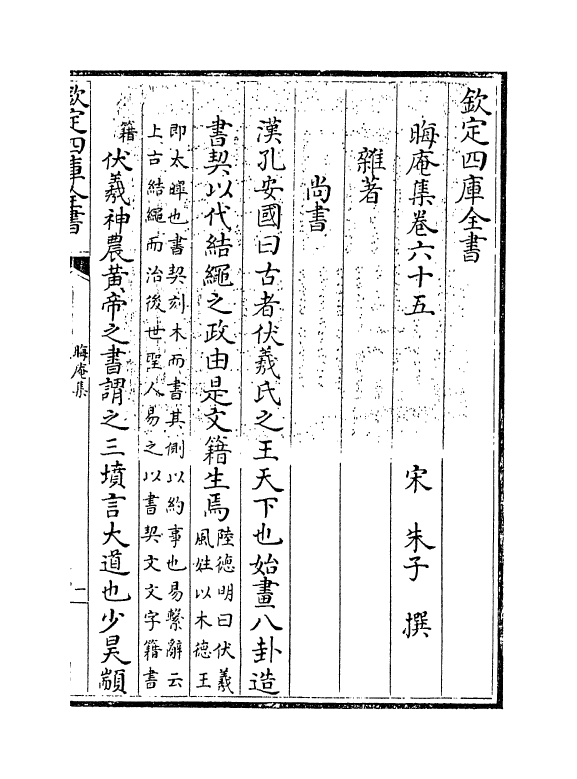 欽定四庫全書
晦庵集卷六十五　宋　朱子　撰
雜著
尚書
漢孔安國曰古者伏羲氏之王天下也始畫八卦造
書契以代結繩之政由是文籍生焉
陸德明曰伏羲
風姓以木德王
即太皥也書契刻木而書其側以約事也易繫辭云
上古結繩而治後世聖人易之以書契文文字籍書
籍
伏羲神農黃帝之書謂之三墳言大道也少昊顓
欽定四庫全書
晦庵集
一